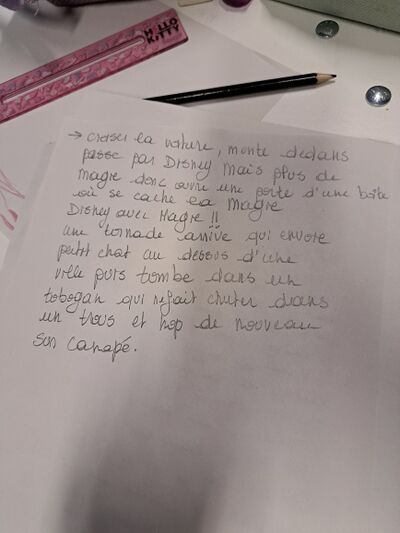 HELLO
KITTY
→ creuser la voiture, monte dedans
passe par Disney Mais plus de
magie donc ouvre une porte d'une boîte
où se cache la Magie
Disney avec Magie !!
une tornade arrive qui envoie
petit chat au dessus d'une
ville puis tombe dans un
tobogan qui fait chuter dans
un trous et hop de nouveau
son canapé.